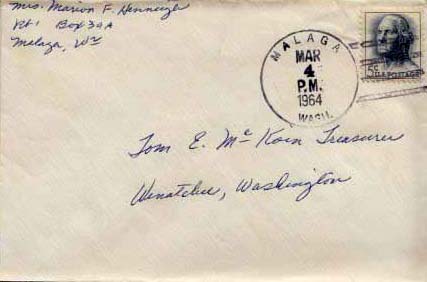 Mrs. Marion F. Henneizer
Rt 1 Box 39A
Malaga, Wn
MALAGA
MAR
4
P.M.
1964
WASH.
5¢ U.S. POSTAGE
Tom E. McKoin Treasurer
Wenatchee, Washington